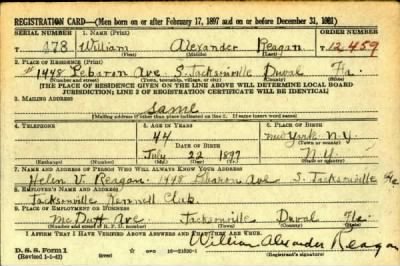 REGISTRATION CARD—(Men born on or after February 17, 1897 and on or before December 31, 1921)
SERIAL NUMBER 1. NAME (Print) ORDER NUMBER
T 178 William Alexander Reagan T 12,459
(First) (Middle) (Last)
2. PLACE OF RESIDENCE (Print)
1448 Lebaron Ave S. Jacksonville Duval Fla.
(Number and street) (Town, township, village, or city) (County) (State)
[THE PLACE OF RESIDENCE GIVEN ON THE LINE ABOVE WILL DETERMINE LOCAL BOARD
JURISDICTION; LINE 2 OF REGISTRATION CERTIFICATE WILL BE IDENTICAL]
3. MAILING ADDRESS
Same
[Mailing address if other than place indicated on line 2. If same insert word same]
4. TELEPHONE 5. AGE IN YEARS 6. PLACE OF BIRTH
44 New York N.Y.
DATE OF BIRTH (Town or county)
July 22 1897
(Exchange) (Number) (Mo.) (Day) (Yr.) (State or country)
7. NAME AND ADDRESS OF PERSON WHO WILL ALWAYS KNOW YOUR ADDRESS
Helen V. Reagan 1448 Lebaron Ave S. Jacksonville Fla
8. EMPLOYER'S NAME AND ADDRESS
Jacksonville Kennell Club
9. PLACE OF EMPLOYMENT OR BUSINESS
McDuff Ave Jacksonville Duval Fla.
(Number and street or R. F. D. number) (Town) (County) (State)
I AFFIRM THAT I HAVE VERIFIED ABOVE ANSWERS AND THAT THEY ARE TRUE.
D. S. S. Form 1
(Revised 1-1-42) GPO William Alexander Reagan
(Registrant's signature)